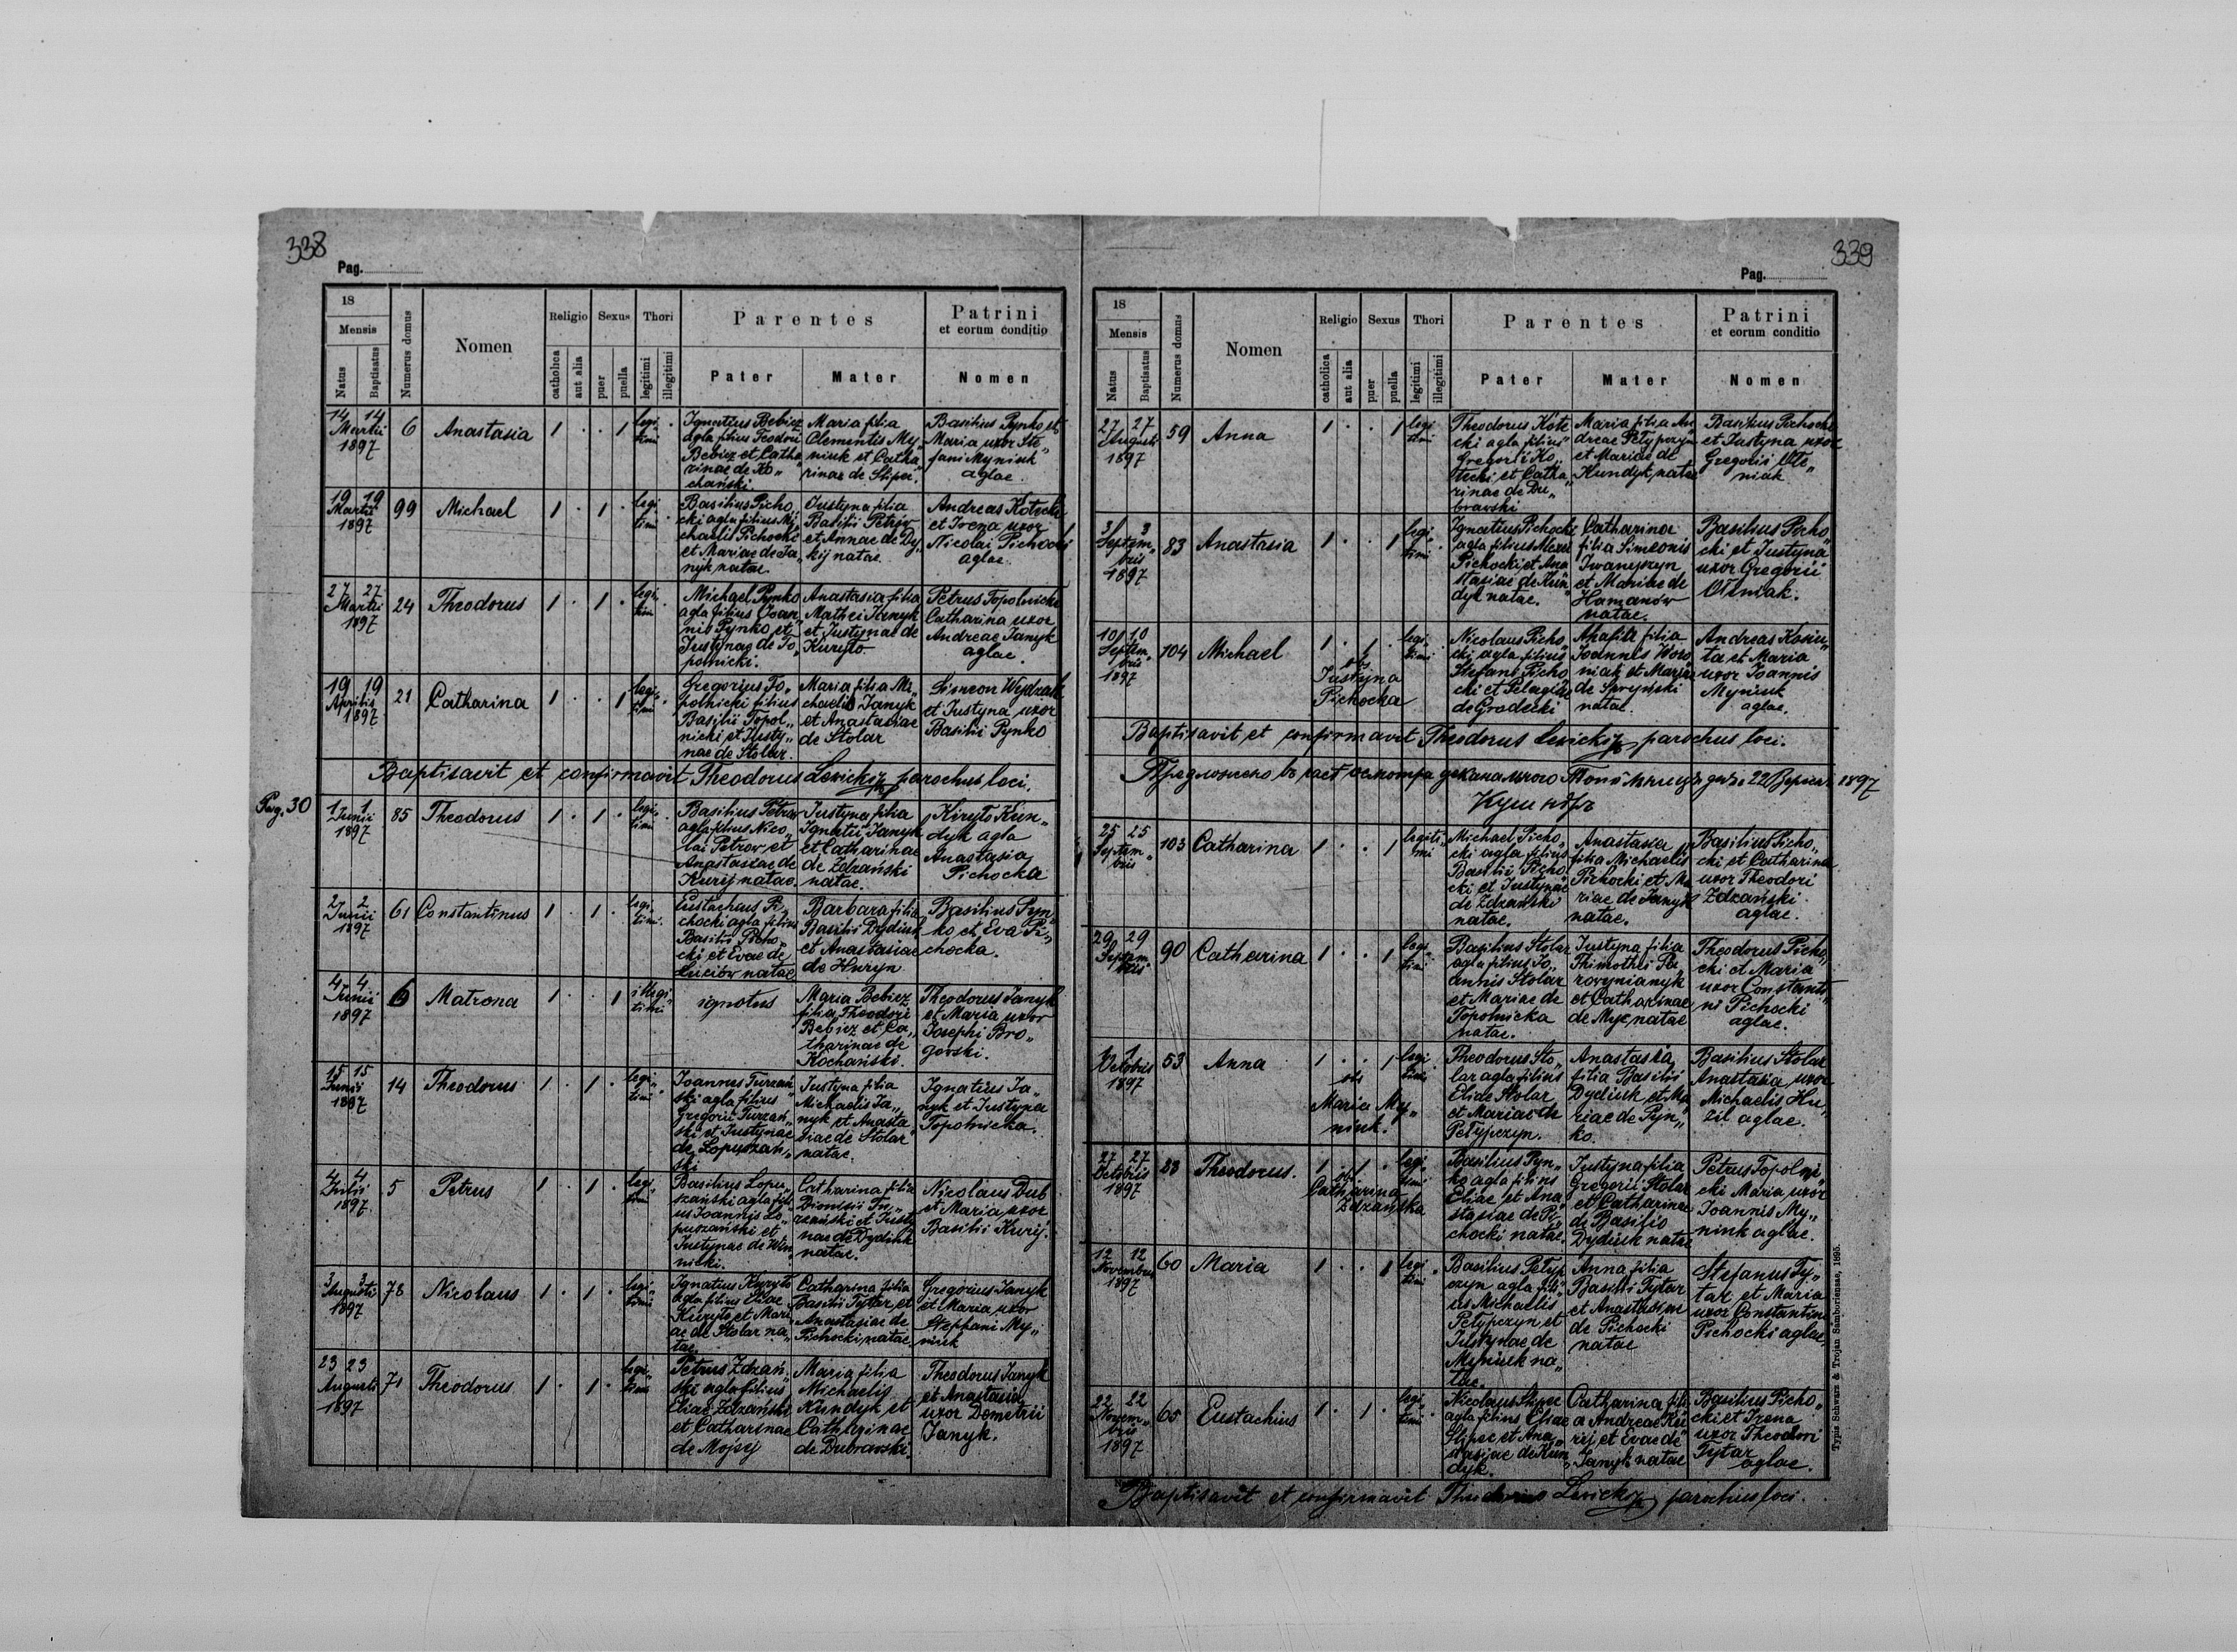 338
Pag.
18
Mensis
Natus
Baptisatus
Numerus domus
Nomen
Religio
catholica
aut alia
Sexus
puer
puella
Thori
legitimi
illegitimi
Parentes
Pater
Mater
Patrini
et eorum conditio
Nomen
14 14
Martii
1897
6
Anastasia
1 . . 1
legi„
timi
Ignatius Bebicz
agla filius Teodori
Bebicz et Catha„
rinae de Ko„
chański.
Maria filia
Clementis My„
niuk et Catha„
rinae de Slipec.
Basilius Pynko et
Maria uxor Ste„
fani Myniuk
aglae.
19 19
Martii
1897
99
Michael
1 . 1 .
legi„
timi
Basilius Picho„
cki agla filius Mi„
chaelis Pichocki
et Mariae de Ja„
nyk natae.
Justyna filia
Basilii Petrów
et Annae de Dy„
kij natae.
Andreas Kotecki
et Irena uxor
Nicolai Pichocki
aglae.
27 27
Martii
1897
24
Theodorus
1 . 1 .
legi„
timi
Michael Pynko
agla filius Joan„
nis Pynko et
Justynae de To„
polnicki.
Anastasia filia
Mathei Janyk
et Justynae de
Kuryło.
Petrus Topolnicki
Catharina uxor
Andreae Janyk
aglae.
19 19
Aprilis
1897
21
Catharina
1 . . 1
legi„
timi
Gregorius To„
polnicki filius
Basilii Topol„
nicki et Justy„
nae de Stolar.
Maria filia Mi„
chaelis Janyk
et Anastasiae
de Stolar
Simeon Wydzak
et Justyna uxor
Basilii Pynko
Baptisavit et confirmavit Theodorus Levicki parochus loci.
Pag. 30
1 1
Junii
1897
85
Theodorus
1 . 1 .
legi„
timi
Basilius Petrow
agla filius Nico„
lai Petrow et
Anastasiae de
Kurij natae.
Justyna filia
Ignatii Janyk
et Catharinae
de Zdzański
natae.
Kiryło Kun„
dyk agla
Anastasia
Pichocka
2 2
Junii
1897
61
Constantinus
1 . 1 .
legi„
timi.
Eustachius Pi„
chocki agla filius
Basilii Picho„
cki et Evae de
Łuciów natae
Barbara filia
Basilii Dydiuk
et Anastasiae
de Huryn
Basilius Pyn„
ko et Eva Pi„
chocka.
4 4
Junii
1897
6
Matrona
1 . . 1
illegi„
timi
ignotus
Maria Bebicz
filia Theodori
Bebicz et Ca„
tharinae de
Kochański.
Theodorus Janyk
et Maria uxor
Josephi Bro„
gowski.
15 15
Junii
1897
14
Theodorus
1 . 1 .
legi„
timi
Joannes Turzań„
ski agla filius
Gregorii Turzań„
ski et Justynae
de Łopuszań„
ski
Justyna filia
Michaelis Ja„
nyk et Anasta„
siae de Stolar
natae.
Ignatius Ja„
nyk et Justyna
Topolnicka.
4 4
Julii
1897
5
Petrus
1 . 1 .
legi„
timi
Basilius Łopu„
szański agla fili„
us Joannis Ło„
puszański et
Justynae de Win„
nicki.
Catharina filia
Dionisii Tu„
rzański et Justy„
nae de Dydiuk
natae.
Nicolaus Dub
et Maria uxor
Basilii Kurij.
3 3
Augusti
1897
78
Nicolaus
1 . 1 .
legi„
timi
Ignatius Kuryło
agla filius Eliae
Kuryło et Mari„
ae de Stolar na„
tae.
Catharina filia
Basilii Tytar et
Anastasiae de
Pichocki natae
Gregorius Janyk
et Maria uxor
Stephani My„
niuk
23 23
Augusti
1897
71
Theodorus
1 . 1 .
legi„
timi
Petrus Zdzań„
ski agla filius
Eliae Zdzański
et Catharinae
de Mojsej
Maria filia
Michaelis
Kundyk et
Catharinae
de Dubrawski.
Theodorus Janyk
et Anastasia
uxor Demetrii
Janyk.
339
Pag.
18
Mensis
Natus
Baptisatus
Numerus domus
Nomen
Religio
catholica
aut alia
Sexus
puer
puella
Thori
legitimi
illegitimi
Parentes
Pater
Mater
Patrini
et eorum conditio
Nomen
27 27
Augusti
1897
59
Anna
1 . . 1
legi„
timi
Theodorus Kote„
cki agla filius
Gregorii Ko„
tecki et Catha„
rinae de Du„
brawski
Maria filia An„
dreae Petypczyn
et Mariae de
Kundyk natae
Basilius Pichocki
et Justyna uxor
Gregorii Ole„
niak
3 3
Septem„
bris
1897
83
Anastasia
1 . . 1
legi„
timi
Ignatius Pichocki
agla filius Alexii
Pichocki et Ana„
stasiae de Kun„
dyk natae.
Catharina
filia Simeonis
Iwanyszyn
et Mariae de
Hamanów
natae.
Basilius Picho„
cki et Justyna
uxor Gregorii
Oleniak.
10 10
Septem„
bris
1897
104
Michael
1 . 1 .
legi„
timi
obs
Justyna
Pichocka
Nicolaus Picho„
cki agla filius
Stefani Picho„
cki et Pelagiae
de Grodecki
Ahafia filia
Joannis Woro„
niak et Mariae
de Spryński
natae.
Andreas Kosiu„
ta et Maria
uxor Joannis
Myniuk
aglae.
Baptisavit et confirmavit Theodorus Levicki parochus loci.
22 1897
25 25
Septem„
bris
103
Catharina
1 . . 1
legiti„
mi
Michael Picho„
cki agla filius
Basilii Picho„
cki et Justynae
de Zdzański
natae.
Anastasia
filia Michaelis
Pichocki et Ma„
riae de Janyk
natae.
Basilius Picho„
cki et Catharina
uxor Theodori
Zdzański
aglae.
29 29
Septem„
bris
90
Catharina
1 . . 1
legi„
timi
Basilius Stolar
agla filius Jo„
annis Stolar
et Mariae de
Topolnicka
natae.
Justyna filia
Thimothei Pa„
rovynianyk
et Catharinae
de Myc natae
Theodorus Picho„
cki et Maria
uxor Constanti„
ni Pichocki
aglae.
1 1
Octobris
1897
53
Anna
1 . . 1
legi„
timi
obs
Maria My„
niuk.
Theodorus Sto„
lar agla filius
Eliae Stolar
et Mariae de
Petypczyn.
Anastasia
filia Basilii
Dydiuk et Ma„
riae de Pyn„
ko.
Basilius Stolar
Anastasia uxor
Michaelis Hu„
zil aglae.
27 27
Octobris
1897
23
Theodorus.
1 . 1 .
legi„
timi
obs
Catharina
Zdzańska
Basilius Pyn„
ko agla filius
Eliae et Ana„
stasiae de Pi„
chocki natae.
Justyna filia
Gregorii Stolar
et Catharinae
de Basilio
Dydiuk natae
Petrus Topolni„
cki Maria uxor
Joannis My„
niuk aglae.
12 12
Novembris
1897
60
Maria
1 . . 1
legi„
timi
Basilius Petyp„
czyn agla fili„
us Michaelis
Petypczyn et
Justynae de
Myniuk na„
tae.
Anna filia
Basilii Tytar
et Anastasiae
de Pichocki
natae
Stefanus Ty„
tar et Maria
uxor Constantini
Pichocki aglae.
22 22
Novem„
bris
1897
65
Eustachius
1 . 1 .
legi„
timi
Nicolaus Slipec
agla filius Eliae
Slipec et Ana„
stasiae de Kun„
dyk.
Catharina fili„
a Andreae Ku„
rij et Evae de
Janyk natae
Basilius Picho„
cki et Irena
uxor Theodori
Tytar
aglae.
Baptisavit et confirmavit Theodorus Levicki parochus loci.
Typis Schwarz & Trojan Samboriensse, 1895.